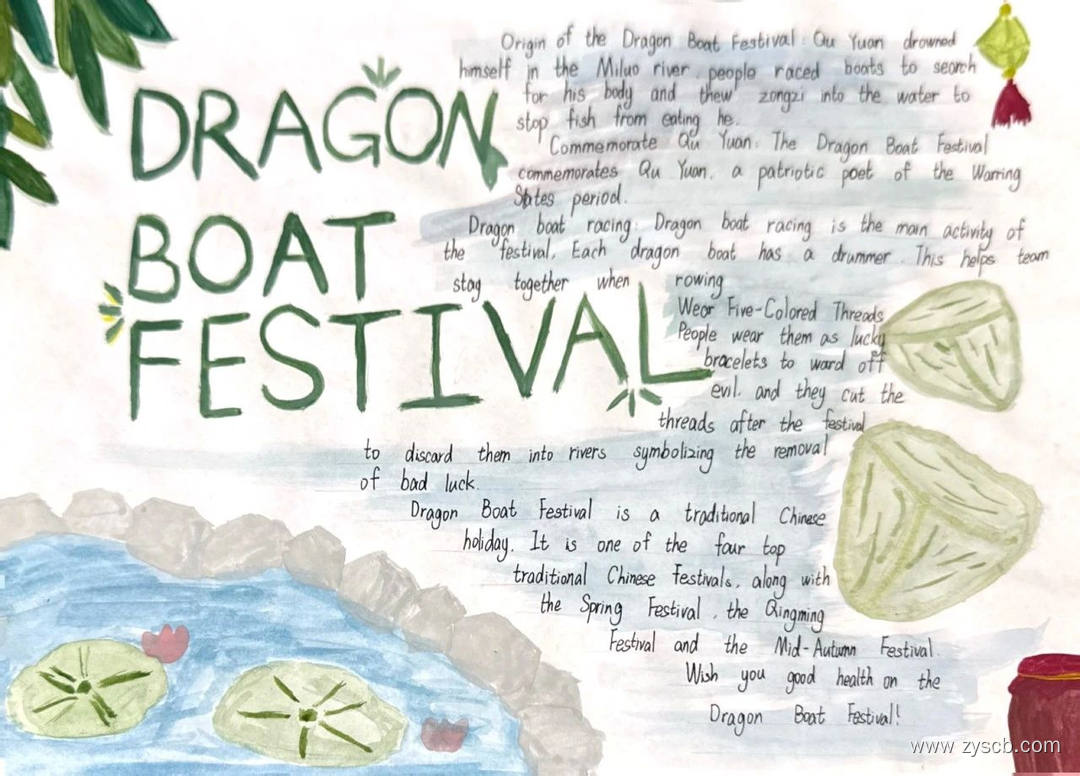 DRAGON
BOAT
FESTIVAL
Origin of the Dragon Boat Festival: Qu Yuan drowned
himself in the Miluo river. people raced boats to search
for his body and thew zongzi into the water to
stop fish from eating he.
Commemorate Qu Yuan: The Dragon Boat Festival
commemorates Qu Yuan. a patriotic poet of the Warring
States period.
Dragon boat racing: Dragon boat racing is the main activity of
the festival. Each dragon boat has a drummer. This helps team
stay together when rowing
Wear Five-Colored Threads
People wear them as lucky
bracelets to ward off
evil. and they cut the
threads after the festival
to discard them into rivers symbolizing the removal
of bad luck.
Dragon Boat Festival is a traditional Chinese
holiday. It is one of the four top
traditional Chinese Festivals. along with
the Spring Festival. the Qingming
Festival and the Mid-Autumn Festival.
Wish you good health on the
Dragon Boat Festival!
www.zyscb.com